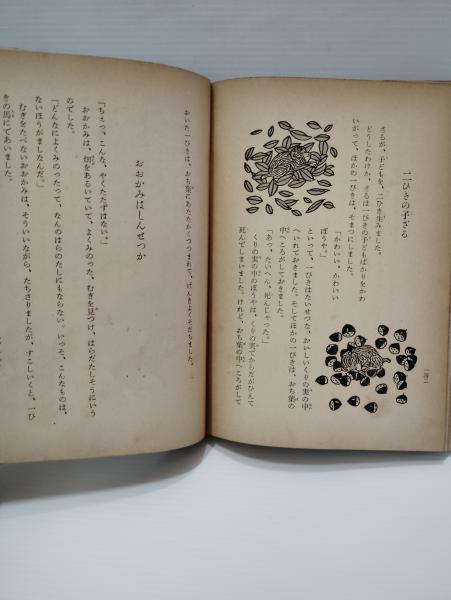 二ひきの子ざる
さるが、子どもを、二ひき生みました。
どうしたわけか、さるは一ぴきの子どもばかりをかわ
いがって、ほかの一ぴきは、そまつにしました。
「かわいい、かわいい
ぼうや。」
といって、一ぴきはたいせつな、おいしいくりの実の中
へいれておきました。そしてほかの一ぴきは、おち葉の
中へころがしておきました。
「あっ、たいへん、死んじゃった。」
くりの実の中のぼうやは、くりの実でからだがひえて
死んでしまいました。けれど、おち葉の中へころがして
おいた一ぴきは、おち葉にあたたかくつつまれて、げんきよくそだちました。
おおかみはしんせつか
「ちぇっ、こんな、やくたたずはない。」
おおかみは、畑をあるいていて、よくみのった、むぎを見つけ、はらだたしそうにいう
のでした。
「どんなによくみのったって、なんのはらのたしにもならない。いっそ、こんなものは、
ないほうがましなんだ。」
むぎをたべないおおかみは、そういいながら、たちさりましたが、すこしいくと、一ぴ
きの馬にであいました。